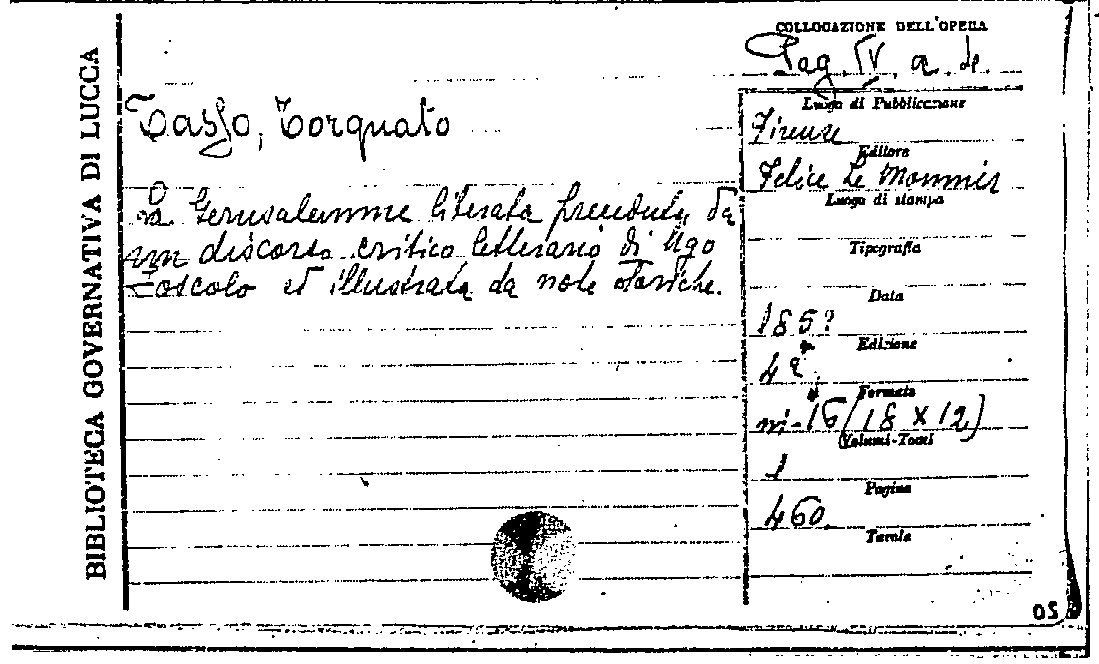 BIBLIOTECA GOVERNATIVA DI LUCCA
COLLOCAZIONE DELL'OPERA
Pag. IV. a. 4.
Tasso, Torquato
La Gerusalemme liberata preceduta da
un discorso critico letterario di Ugo
Foscolo ed illustrata da note storiche.
Luogo di Pubblicazione
Firenze
Editore
Felice Le Monnier
Luogo di stampa
Tipografia
Data
185?
Edizione
4ª
Formato
in-16 (18 x 12)
Volumi-Tomi
1
Pagine
460
Tavole
20